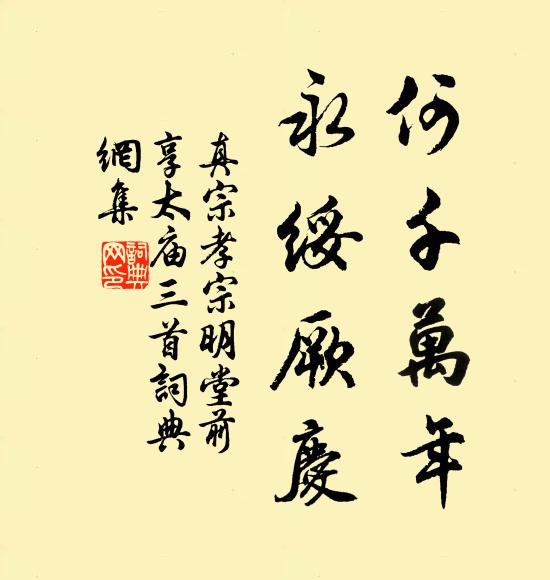 何千萬年
永綏厥慶
真宗孝宗明堂前
享太庙三首詞典
網集
詞典
网印